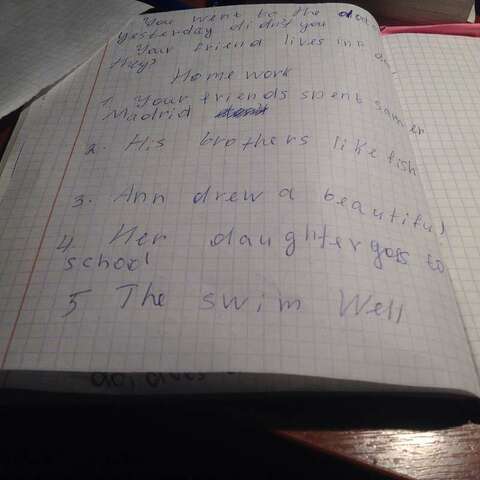 You went to the
yesterday didn't you
Your friend lives in a
they?
Home work
1. Your friends spent
Madrid
2. His brothers like fish
3. Ann drew a beautiful
4 Her daughter goes to
school
5 The swim Well